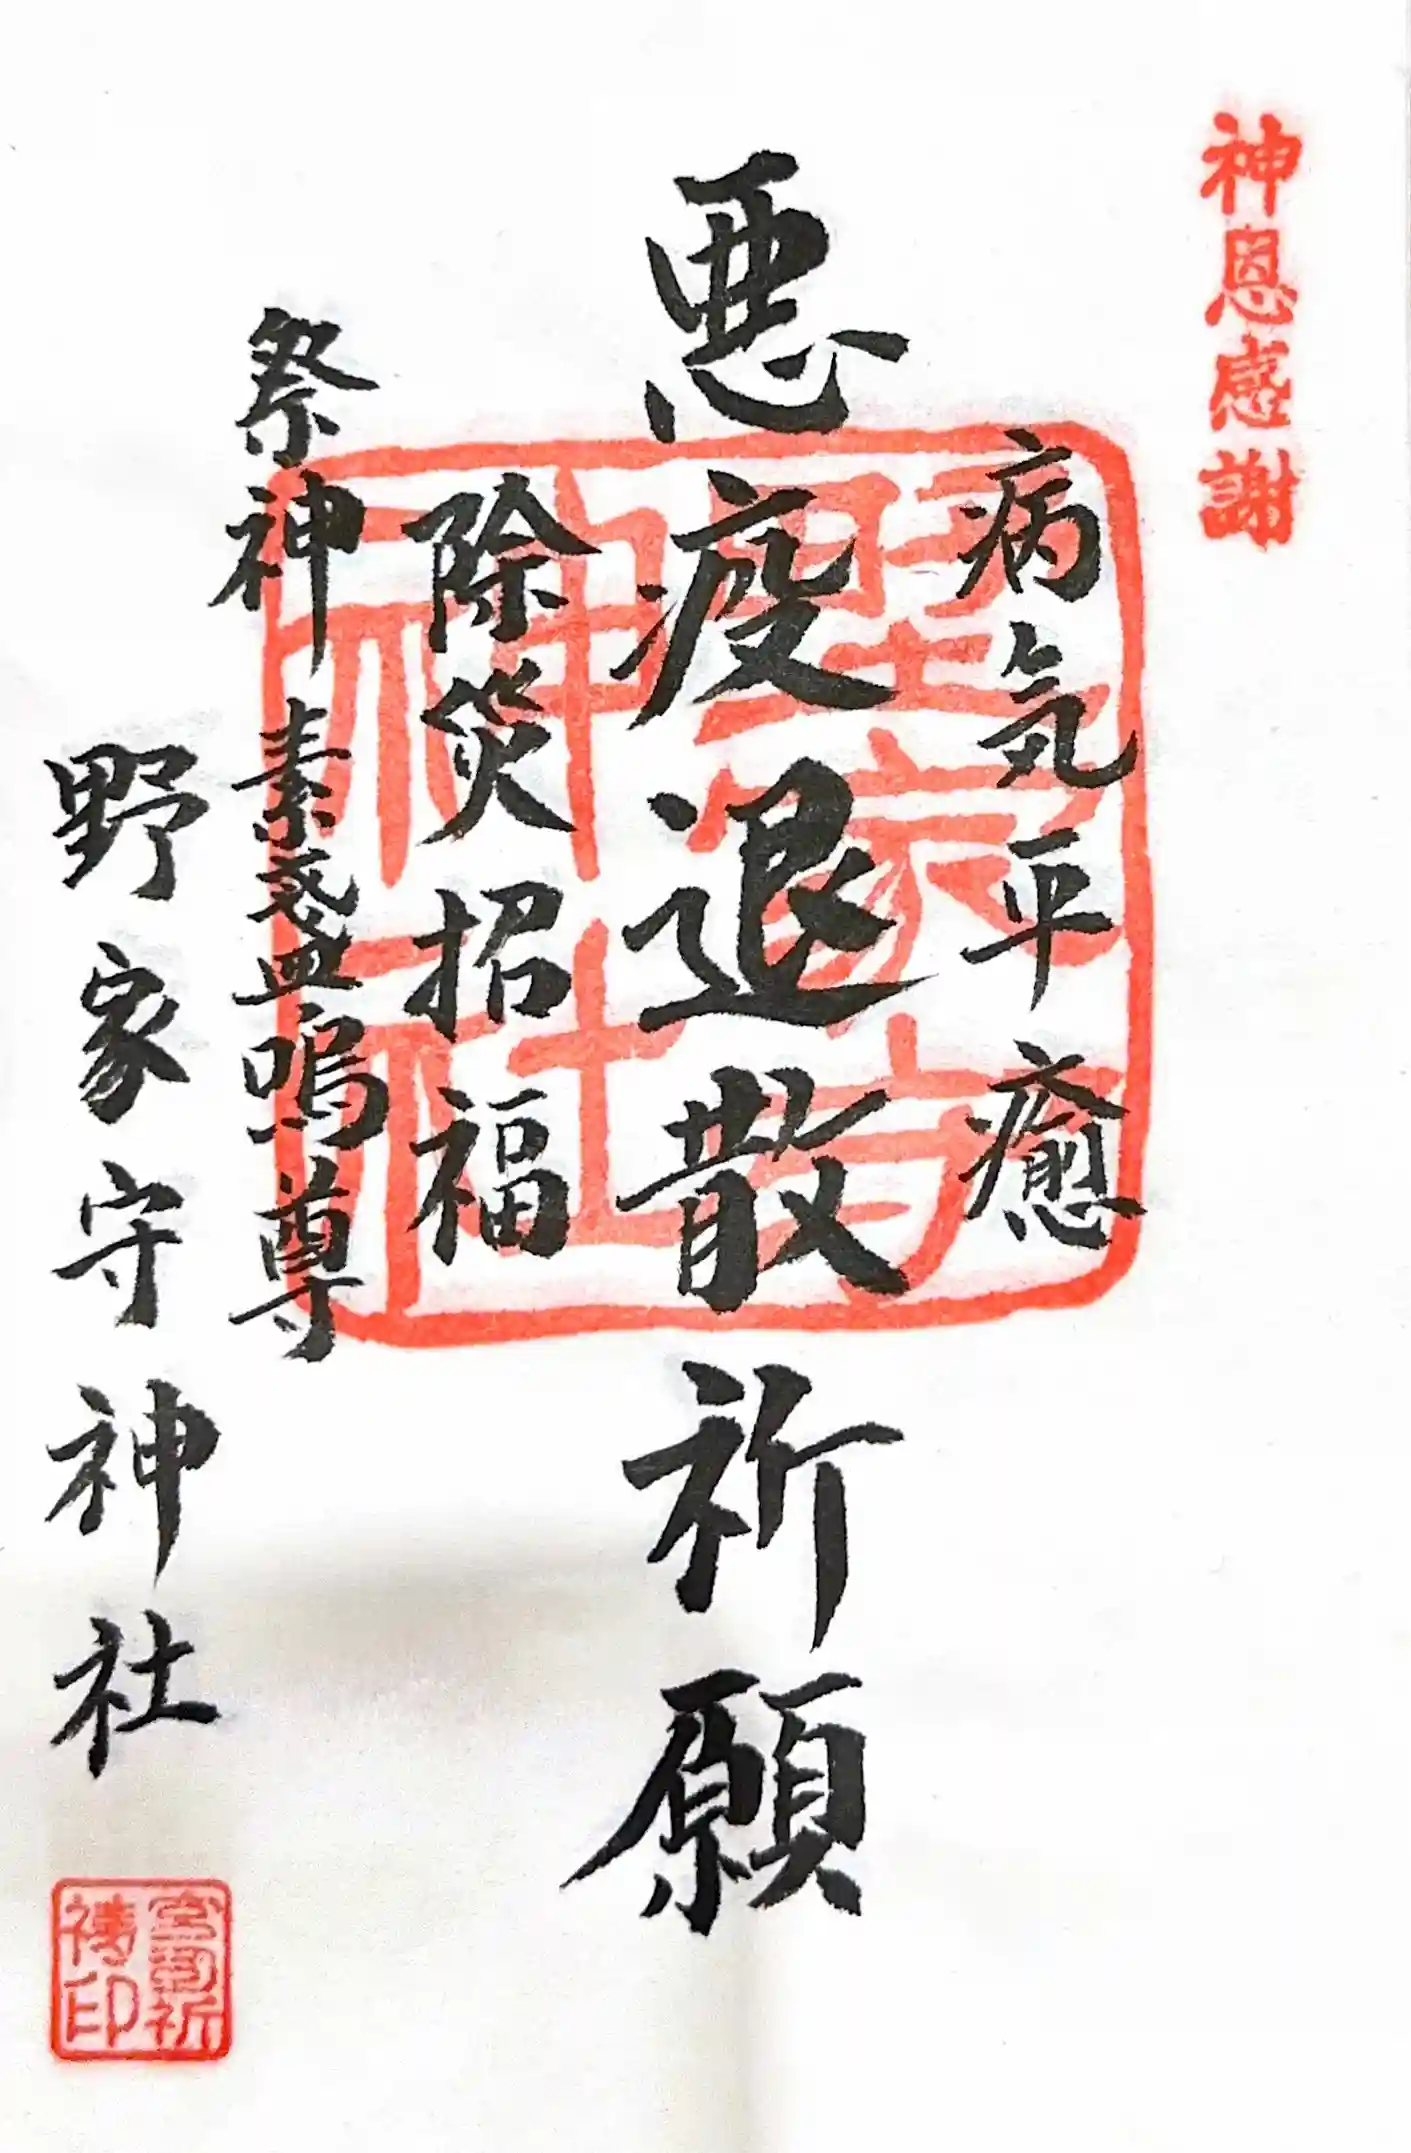 神恩感謝
病気平癒
悪疫退散祈願
除災招福
祭神 素盞嗚尊
野家守神社
野家守
神社
宮司祈
祷印